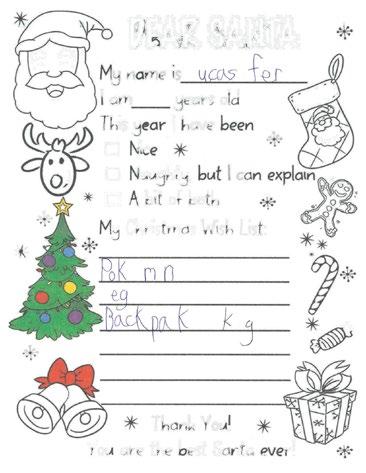 DEAR SANTA
My name is ucas fer
I am ____ years old
This year I have been
Nice
Naughty, but I can explain
A bit of both
My Christmas Wish List:
Pok mn
eg
Backpak k g
Thank You!
You are the best Santa ever!